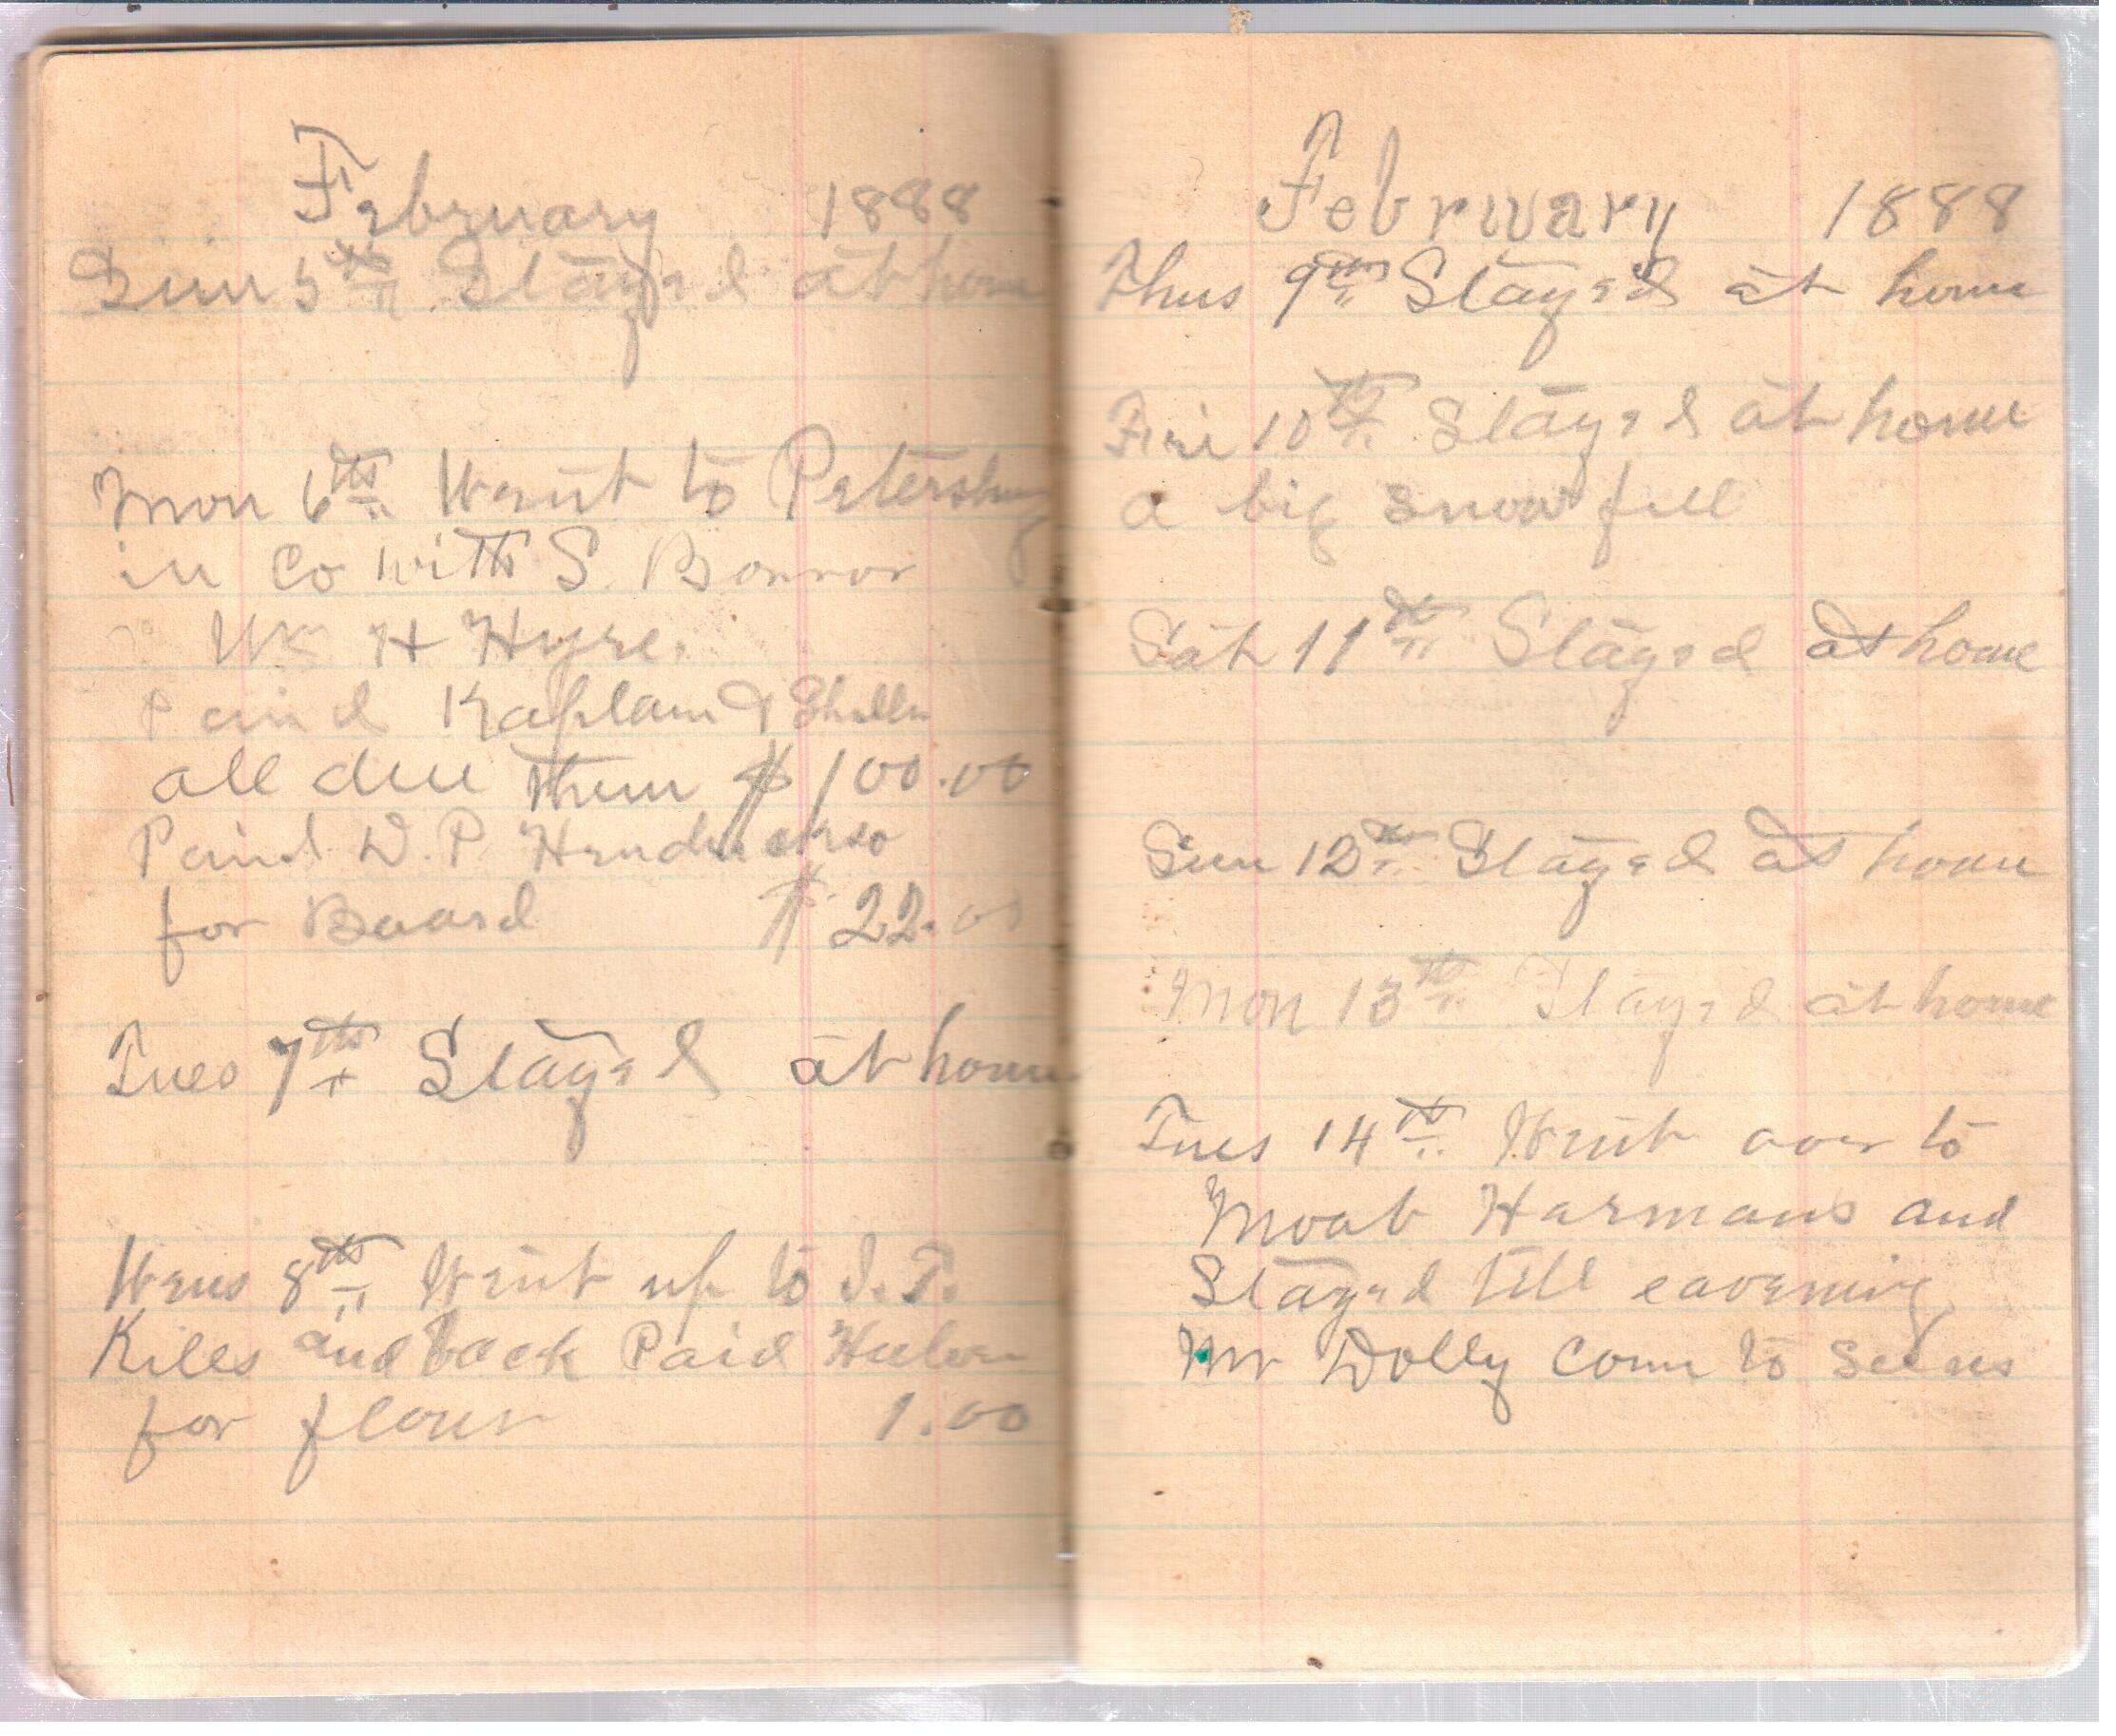 February 1888
Sun 5th Stayed at home
Mon 6th Went to Petersburg
in Co with S. Bonnor
Wm H Hyre.
Paind Kaplam &
all due them $100.00
Paind D. P.
for Board $22.00
Tues 7th Stayed at home
Wens 8th Went up to I. P.
Kiles and back Paid
for flour 1.00
February 1888
Thus 9th Stayed at home
Fri 10th Stayed at home
a big snow fell
Sat 11th Stayed at home
Sun 12th Stayed at home
Mon 13th Stayed at home
Tues 14th Went over to
Moab Harmans and
Stayed till eavening
Mr Dolly Come to See us